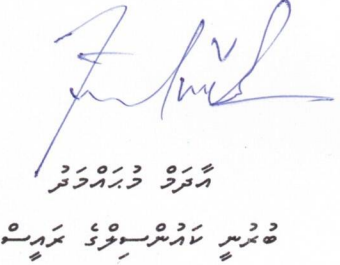 އާދަމް މުޙައްމަދު
ބުރުނީ ކައުންސިލްގެ ރައީސް